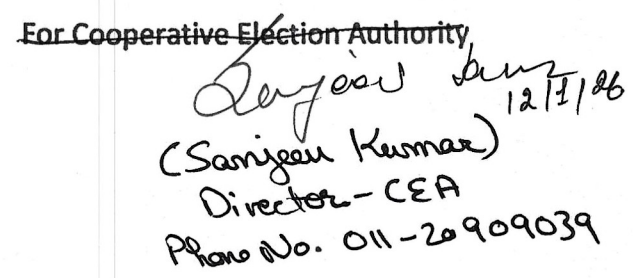 For Cooperative Election Authority
Sanjeev Kumar
12/1/26
(Sanjeev Kumar)
Director-CEA
Phone No. 011-20909039